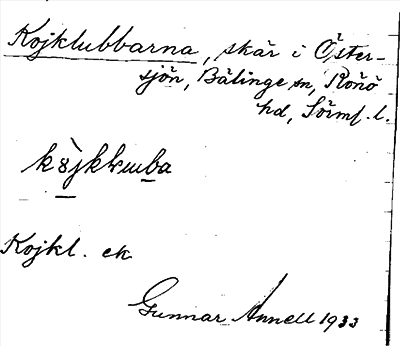 Kojklubbarna, skär i Öster-
sjön, Bälinge sn, Rönö
hd, Sörml. l.
Kojkl. ek
Gunnar Annell 1933